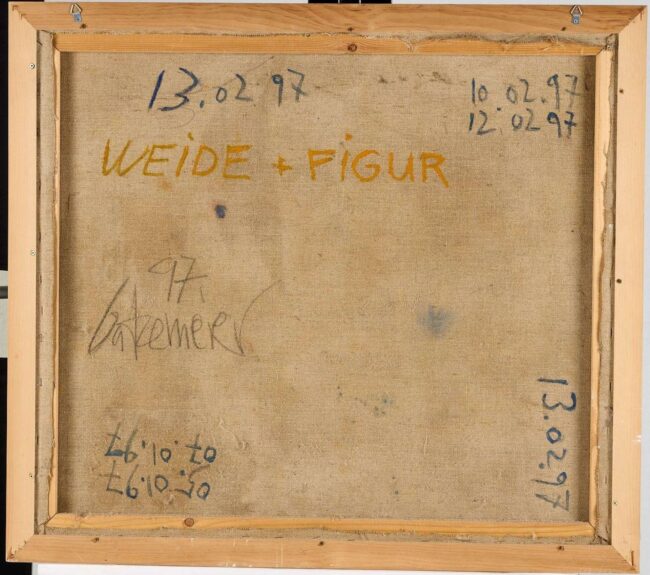 13.02 97
10.02.97
12.02 97
WEIDE + FIGUR
97.
13.02.97
07.01.97
05.01.97